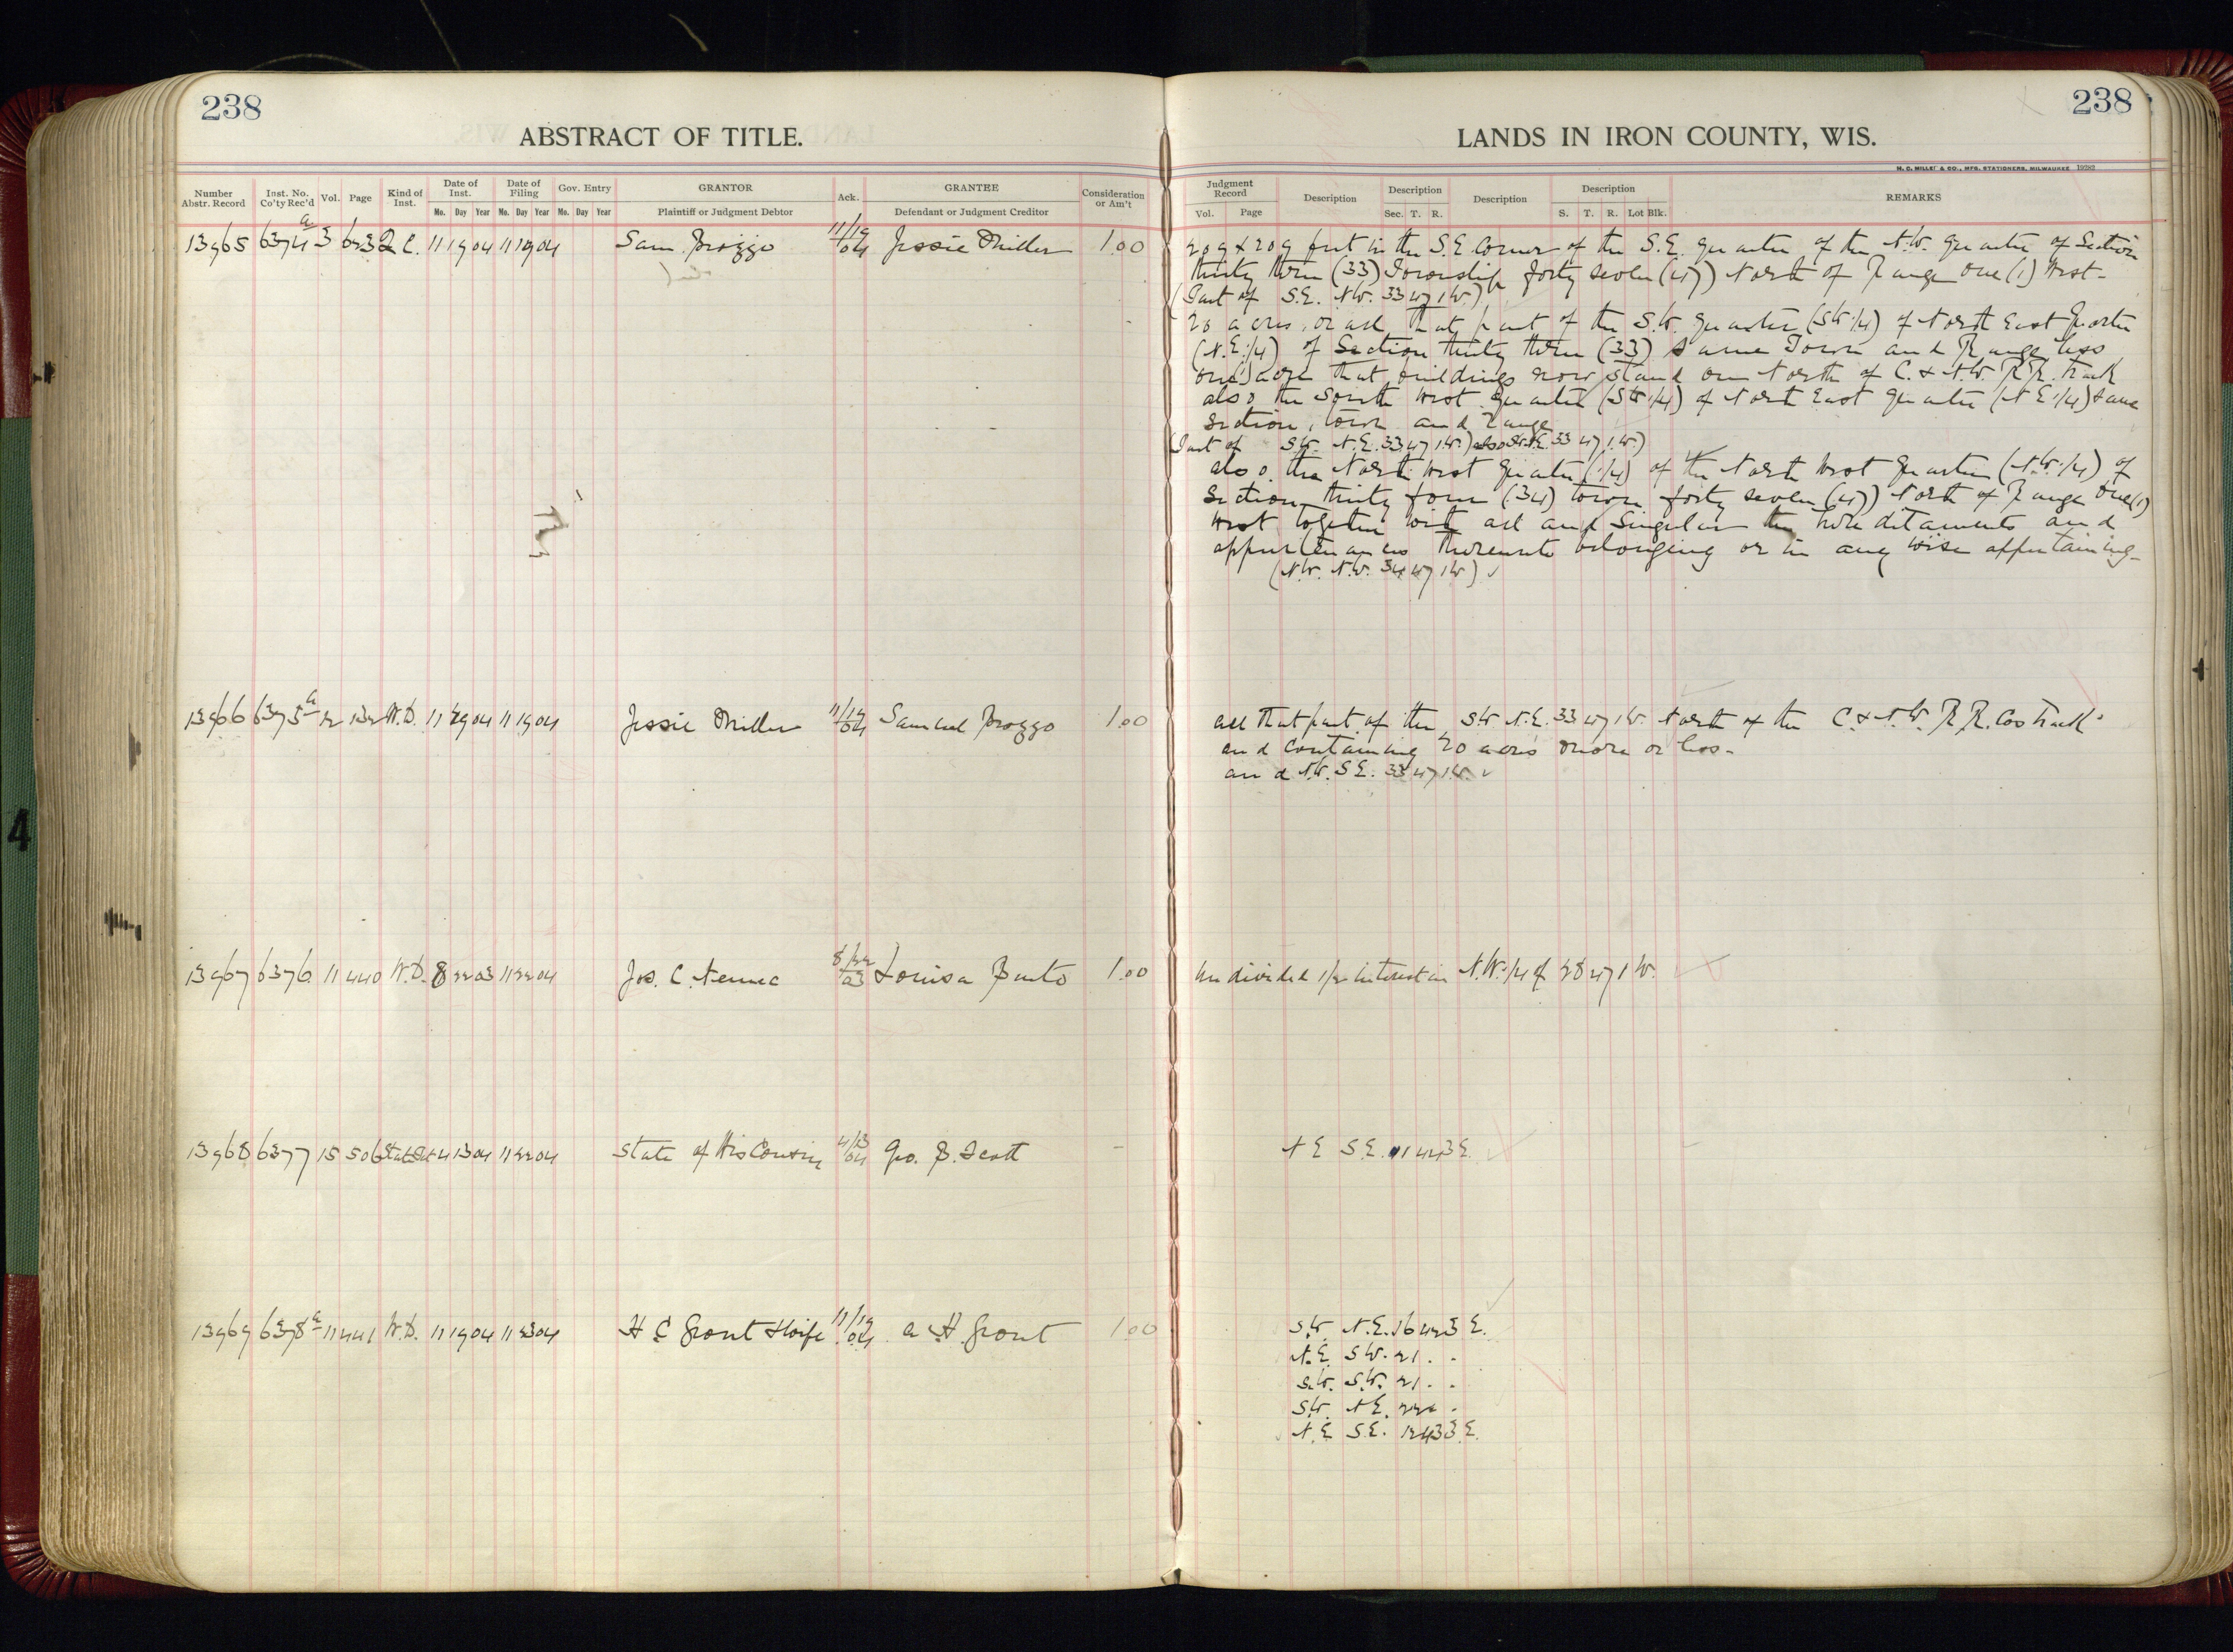 238
ABSTRACT OF TITLE.
Number Abstr. Record Inst. No. Co'ty Rec'd Vol. Page Kind of Inst. Date of Inst. Date of Filing Gov. Entry GRANTOR Ack. GRANTEE Consideration or Am't
Mo. Day Year Mo. Day Year Mo. Day Year Plaintiff or Judgment Debtor Defendant or Judgment Creditor
13965 6374 a 3 Q.C. 11 19 04 11 19 04 Sam 11/19/04 Jessie Miller 1.00
13966 6375 a 12 132 W.D. 11 19 04 11 19 04 Jessie Miller 11/19/04 Samuel 1.00
13967 6376 11 440 W.D. 8 22 03 11 22 04 Jos. C. 8/22/03 Louisa 1.00
13968 6377 15 506 4 13 04 11 22 04 State of Wisconsin 4/13/04 Geo. B. Scott -
13969 6378 a 11 441 W.D. 11 19 04 11 23 04 H E Grout & Wife 11/19/04 A H. Grout 1.00
238
LANDS IN IRON COUNTY, WIS.
H. C. MILLER & CO., MFG. STATIONERS, MILWAUKEE 19282
Judgment Record Description Description Description Description REMARKS
Vol. Page Sec. T. R. S. T. R. Lot Blk.
209 x 209 feet in the S.E. Corner of the S.E. quarter of the N.W. quarter of Section
thirty three (33) Township forty seven (47) North of Range one (1) West-
(Part of S.E. N.W. 33 47 1 W.)
20 acres, or all that part of the S.W. quarter (SW 1/4) of North East Quarter
(N.E. 1/4) of Section thirty three (33) same Town and Range less
one (1) acre that buildings now stand on North of C. & N.W. R.R. track
also the South West quarter (SW 1/4) of North East quarter (N E 1/4) same
Section, town and range
(Part of S.W. N.E. 33 47 1 W.) also 33 47 1 W.)
also the North West quarter (1/4) of the North West quarter (N.W. 1/4) of
Section thirty four (34) town forty seven (47) North of Range One (1)
West together with all and singular the hereditaments and
appurtenances thereunto belonging or in any wise appertaining-
(N.W. N.W. 34 47 1 W) ✓
all that part of the S.W. N.E. 33 47 1 W. North of the C. & N.W. R.R. Cos track
and containing 20 acres more or less-
and N.W. S.E. 33 47 1 W. ✓
Undivided 1/2 interest in N.W. 1/4 of 28 47 1 W.
N E S.E. 11 42 3 E.
S.W. N.E. 16 42 3 E.
N.E. S.W. 21 . .
S.W. S.W. 21 . .
S.W. N E. 22 . .
N.E. S.E. 12 43 3 E.